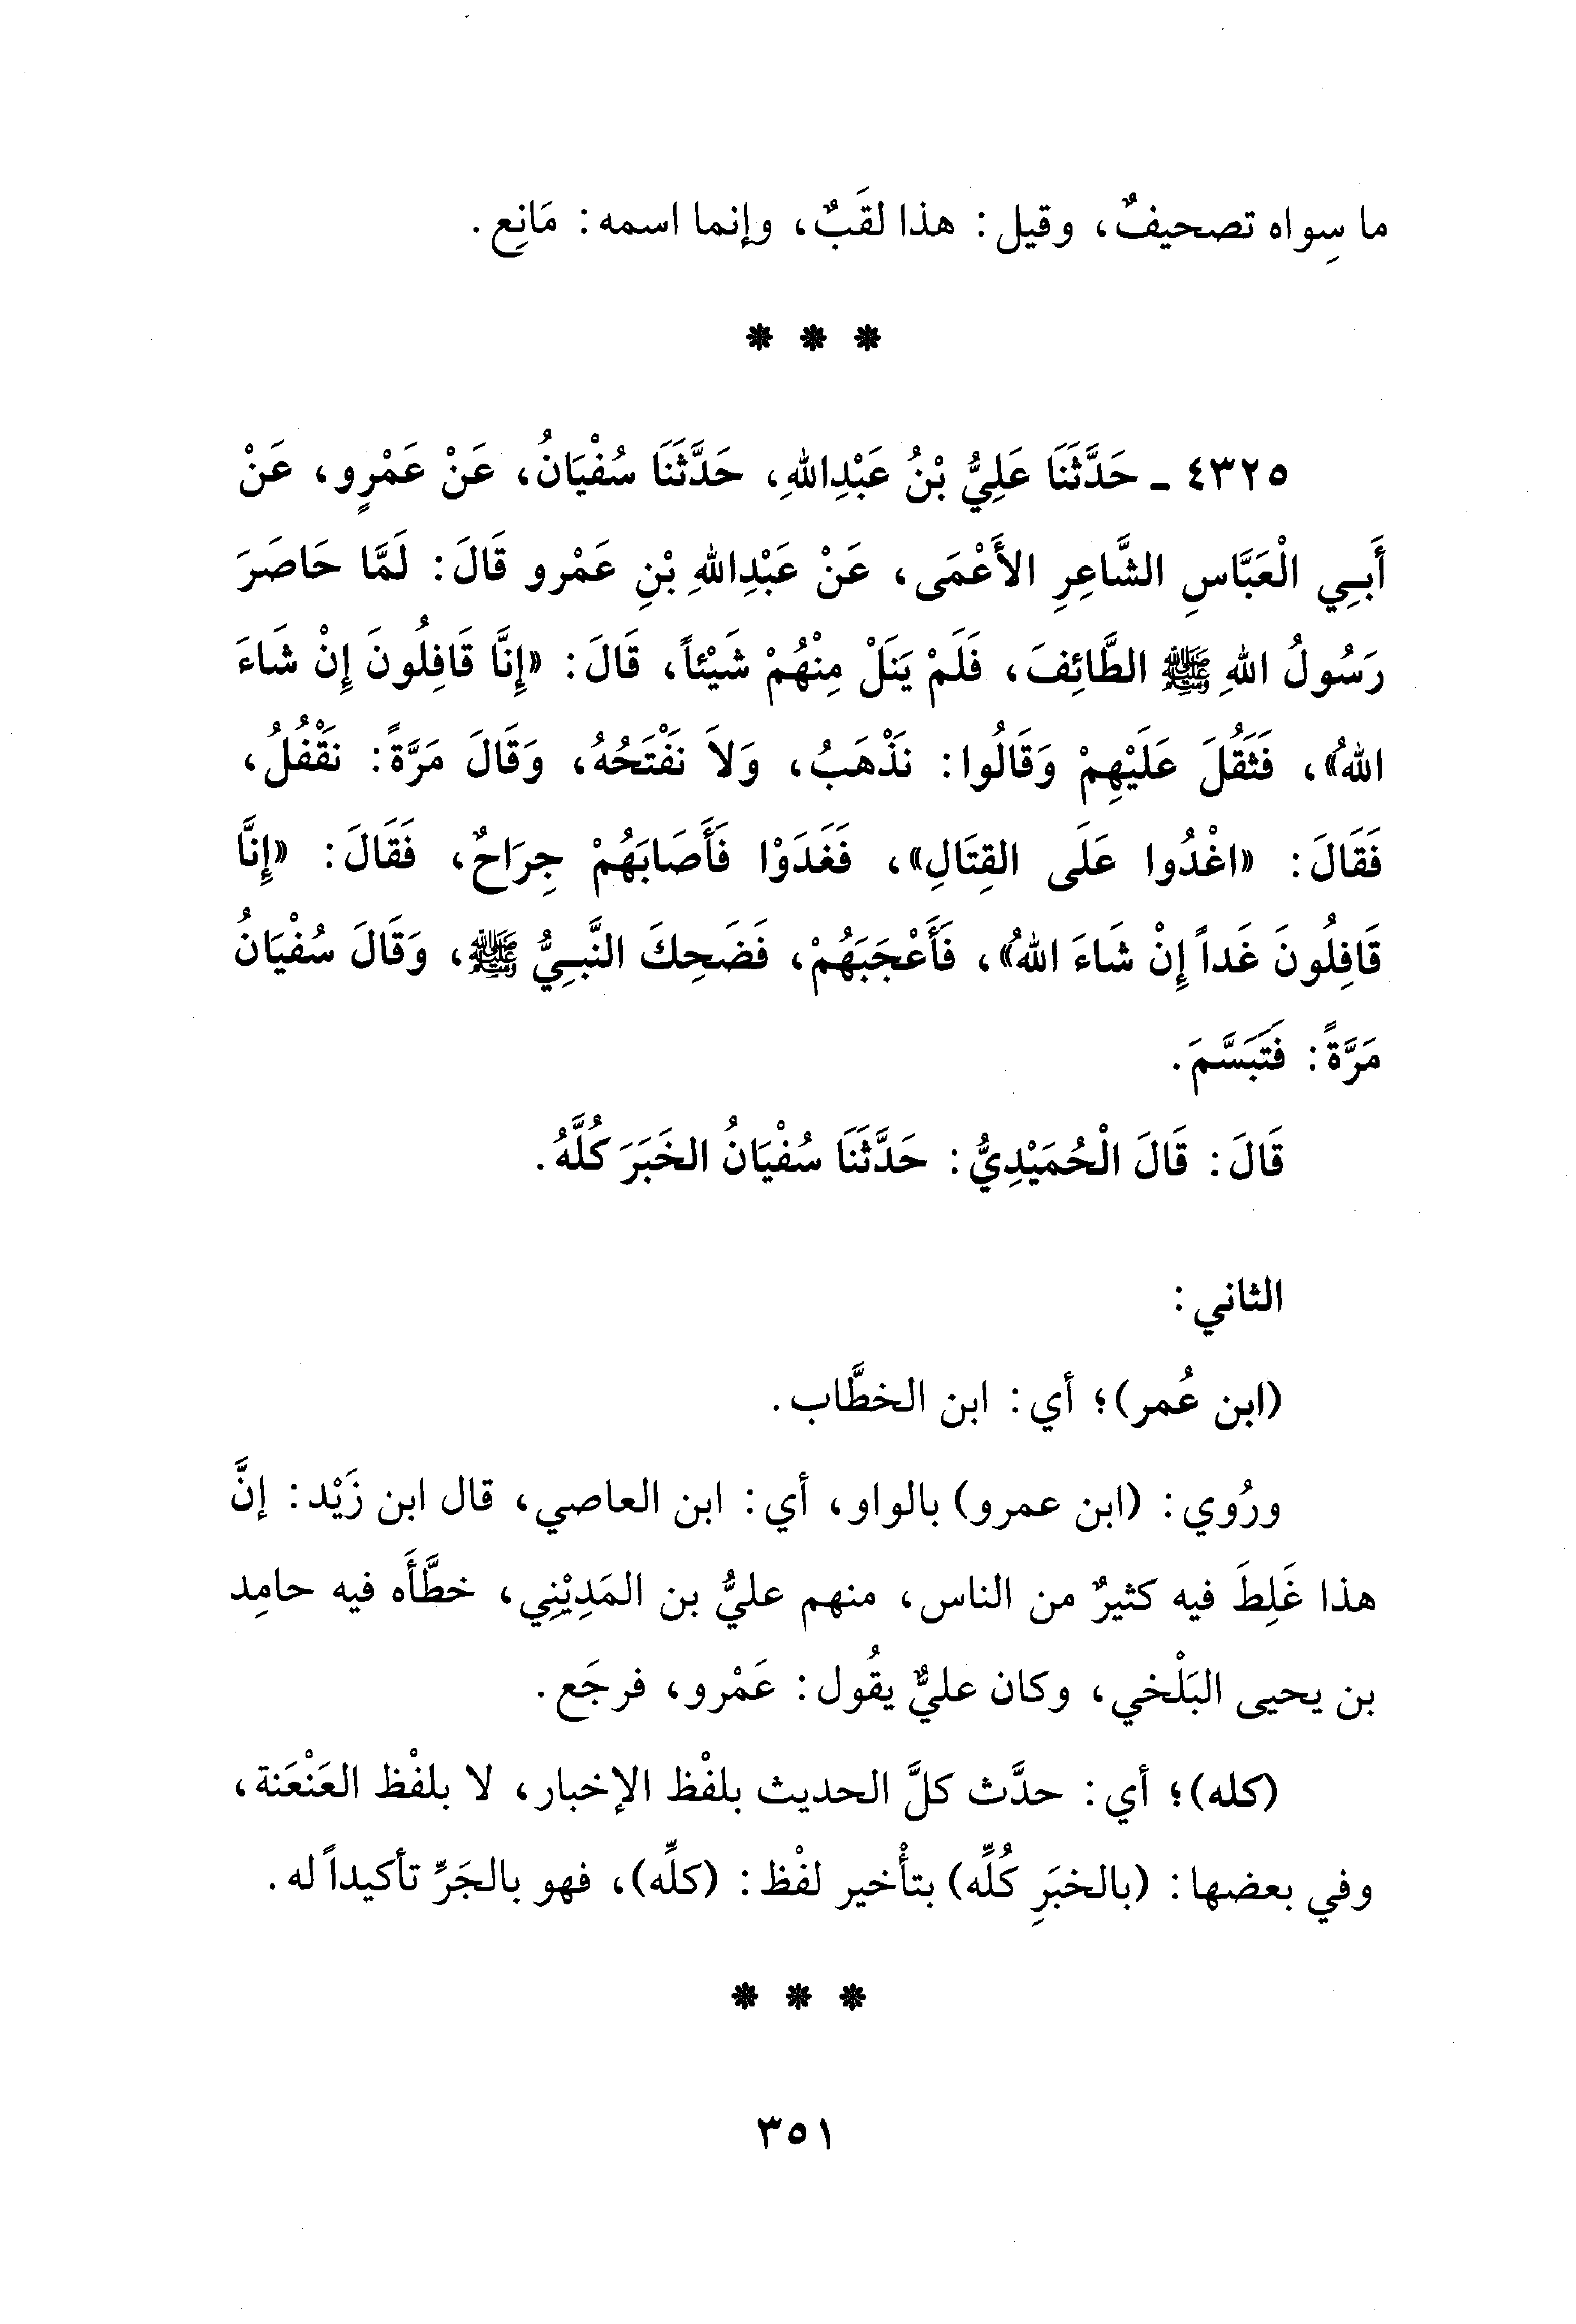 ما سِواه تصحيفٌ، وقيل: هذا لقَبٌ، وإنما اسمه: مَانِع.
* * *
٤٣٢٥ - حَدَّثَنَا عَلِيُّ بْنُ عَبْدِاللهِ، حَدَّثَنَا سُفْيَانُ، عَنْ عَمْرٍو، عَنْ
أَبِي الْعَبَّاسِ الشَّاعِرِ الأَعْمَى، عَنْ عَبْدِاللهِ بْنِ عَمْرو قَالَ: لَمَّا حَاصَرَ
رَسُولُ اللهِ ﷺ الطَّائِفَ، فَلَمْ يَنَلْ مِنْهُمْ شَيْئاً، قَالَ: «إِنَّا قَافِلُونَ إِنْ شَاءَ
اللهُ»، فَثَقُلَ عَلَيْهِمْ وَقَالُوا: نَذْهَبُ، وَلاَ نَفْتَحُهُ، وَقَالَ مَرَّةً: نَقْفُلُ،
فَقَالَ: «اغْدُوا عَلَى القِتَالِ»، فَغَدَوْا فَأَصَابَهُمْ جِرَاحٌ، فَقَالَ: «إِنَّا
قَافِلُونَ غَداً إِنْ شَاءَ اللهُ»، فَأَعْجَبَهُمْ، فَضَحِكَ النَّبِيُّ ﷺ، وَقَالَ سُفْيَانُ
مَرَّةً: فَتَبَسَّمَ.
قَالَ: قَالَ الْحُمَيْدِيُّ: حَدَّثَنَا سُفْيَانُ الخَبَرَ كُلَّهُ.
الثاني:
(ابن عُمر)؛ أي: ابن الخطَّاب.
ورُوي: (ابن عمرو) بالواو، أي: ابن العاصي، قال ابن زَيْد: إنَّ
هذا غَلِطَ فيه كثيرٌ من الناس، منهم عليُّ بن المَدِيْنِي، خطَّأَه فيه حامِد
بن يحيى البَلْخي، وكان عليٌّ يقُول: عَمْرو، فرجَع.
(كله)؛ أي: حدَّث كلَّ الحديث بلفْظ الإخبار، لا بلفْظ العَنْعَنة،
وفي بعضها: (بالخبَرِ كُلِّه) بتأْخير لفْظ: (كلِّه)، فهو بالجَرِّ تأكيداً له.
* * *
٣٥١